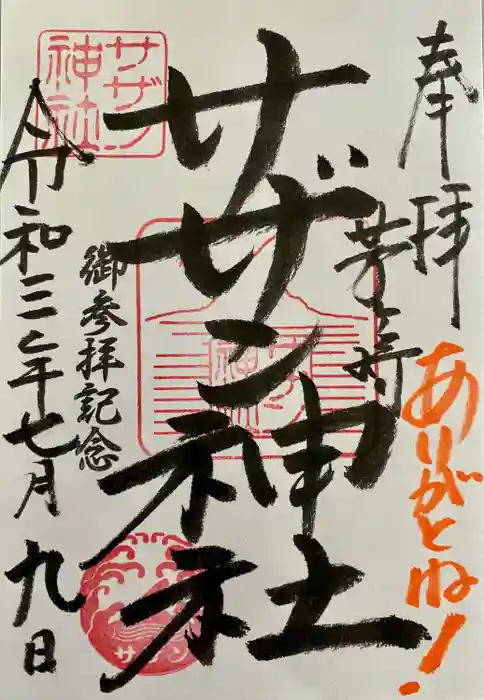 奉拝
茅ヶ崎
ありがとね!
サザン神社
御参拝記念
令和三年七月九日
サザン
神社
サザン
神社
サザン